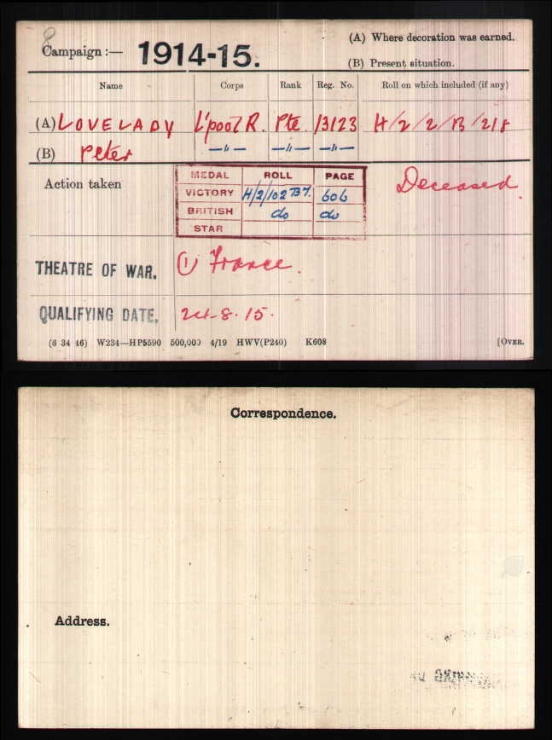 Campaign :— 1914-15.
(A) Where decoration was earned.
(B) Present situation.
Name Corps Rank Reg. No. Roll on which included (if any)
(A) LOVELADY L'pool R. Pte. 13123 H/2/2/B/218
(B) Peter —"— —"— —"—
Action taken
MEDAL ROLL PAGE
VICTORY H/2/102 B7. 606
BRITISH do do
STAR
Deceased.
THEATRE OF WAR. (1) France.
QUALIFYING DATE. 24.8.15.
(6 34 46) W234—HP5590 500,000 4/19 HWV(P240) K608 [OVER.
Correspondence.
Address.